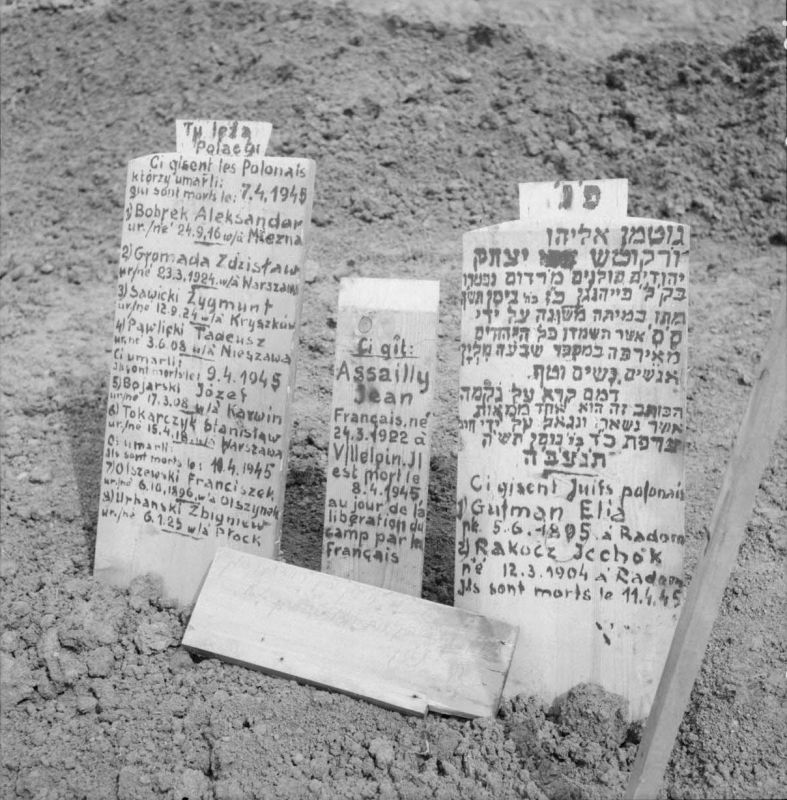 Tu leżą
Polacy:
Ci gisent les Polonais
którzy umarli:
qui sont morts le: 7.4.1945
1) Bobrek Aleksandar
ur./né 24.9.16 w/à Miezna
2) Gromada Zdzisław
ur/né 23.3.1924 w/à Warszawa
3) Sawicki Zygmunt
ur/né 12.9.24 w/à Kryszków
4) Pawlicki Tadeusz
ur. né 3.6.08 w/à Nieszawa
Ci umarli: 9.4.1945
Ils sont morts le:
5) Bojarski Józef
ur/né 17.3.08 w/à Karwin
6) Tokarczyk Stanisław
ur/né 15.4.18 w/à Warszawa
Ci umarli:
Ils sont morts le: 10.4.1945
7) Olszewski Franciszek
ur/né 6.10.1896 w/à Olszynek
8) Urbański Zbigniew
ur./né 6.1.25 w/à Płock
Ci gît:
Assailly
Jean
Français, né
24.3.1922 à
Villelpin. Il
est mort le
8.4.1945
au jour de la
libération du
camp par les
Français
פ'נ'
גוטמן אליהו
ורקוטש יצחק
יהודים פולנים מ'רדום נפטרו
מתו במיתה משונה על ידי
ס'ס' אשר השמדו כל היהודים
מאירפה במספר שבעה מליון
אנשים, נשים וטף.
דמם קרא על נקמה
הכותב זה הוא אחד ממאות
אשר נשאר, ונגאל על ידי חיל
צרפת כ'ד ניסן תש'ה
תנצב'ה
Ci gisent Juifs polonais
1) Gutman Elia
né. 5.6.1895 à Radom
2) Rakocz Icchok
né 12.3.1904 à Radom
Ils sont morts le 11.4.45